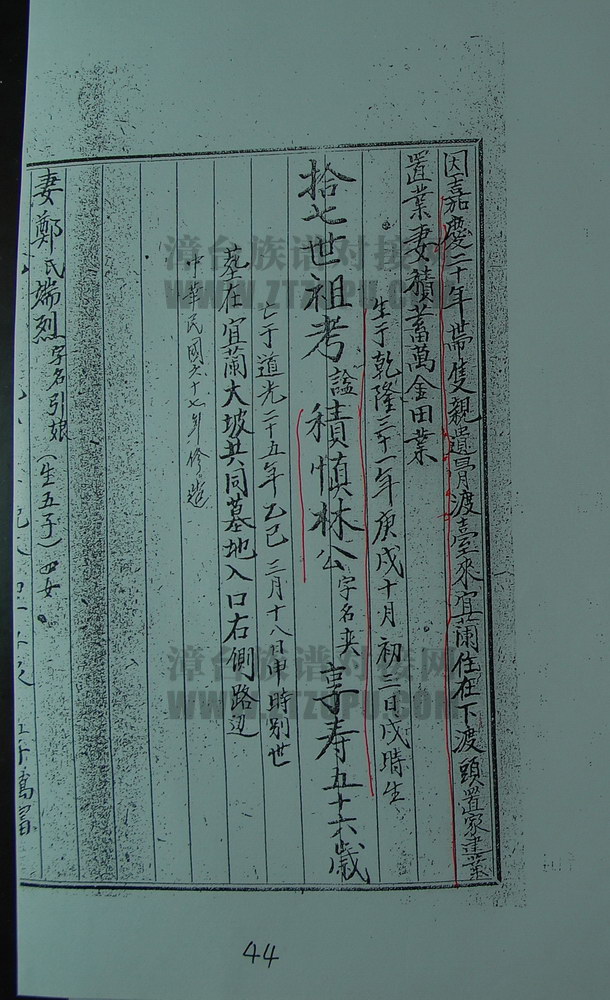 因嘉慶二十年帶隻親遺骨渡臺來宜蘭住在下渡頭置家建業
置業妻積蓄萬金田業
生于乾隆三一年庚戌十月初三日戌時生
拾七世祖考諡積慎林公字名奕享寿五十六歲
亡于道光二十五年乙巳三月十八日申時別世
墓在宜蘭大坡共同墓地入口右側路辺
中華民國六十七年修造
妻鄭氏端烈字名引娘(生五子)四女。
漳台族谱对接网
WWW.ZTZUPU.COM
漳台族谱对接网
WWW.ZTZUPU.COM
44